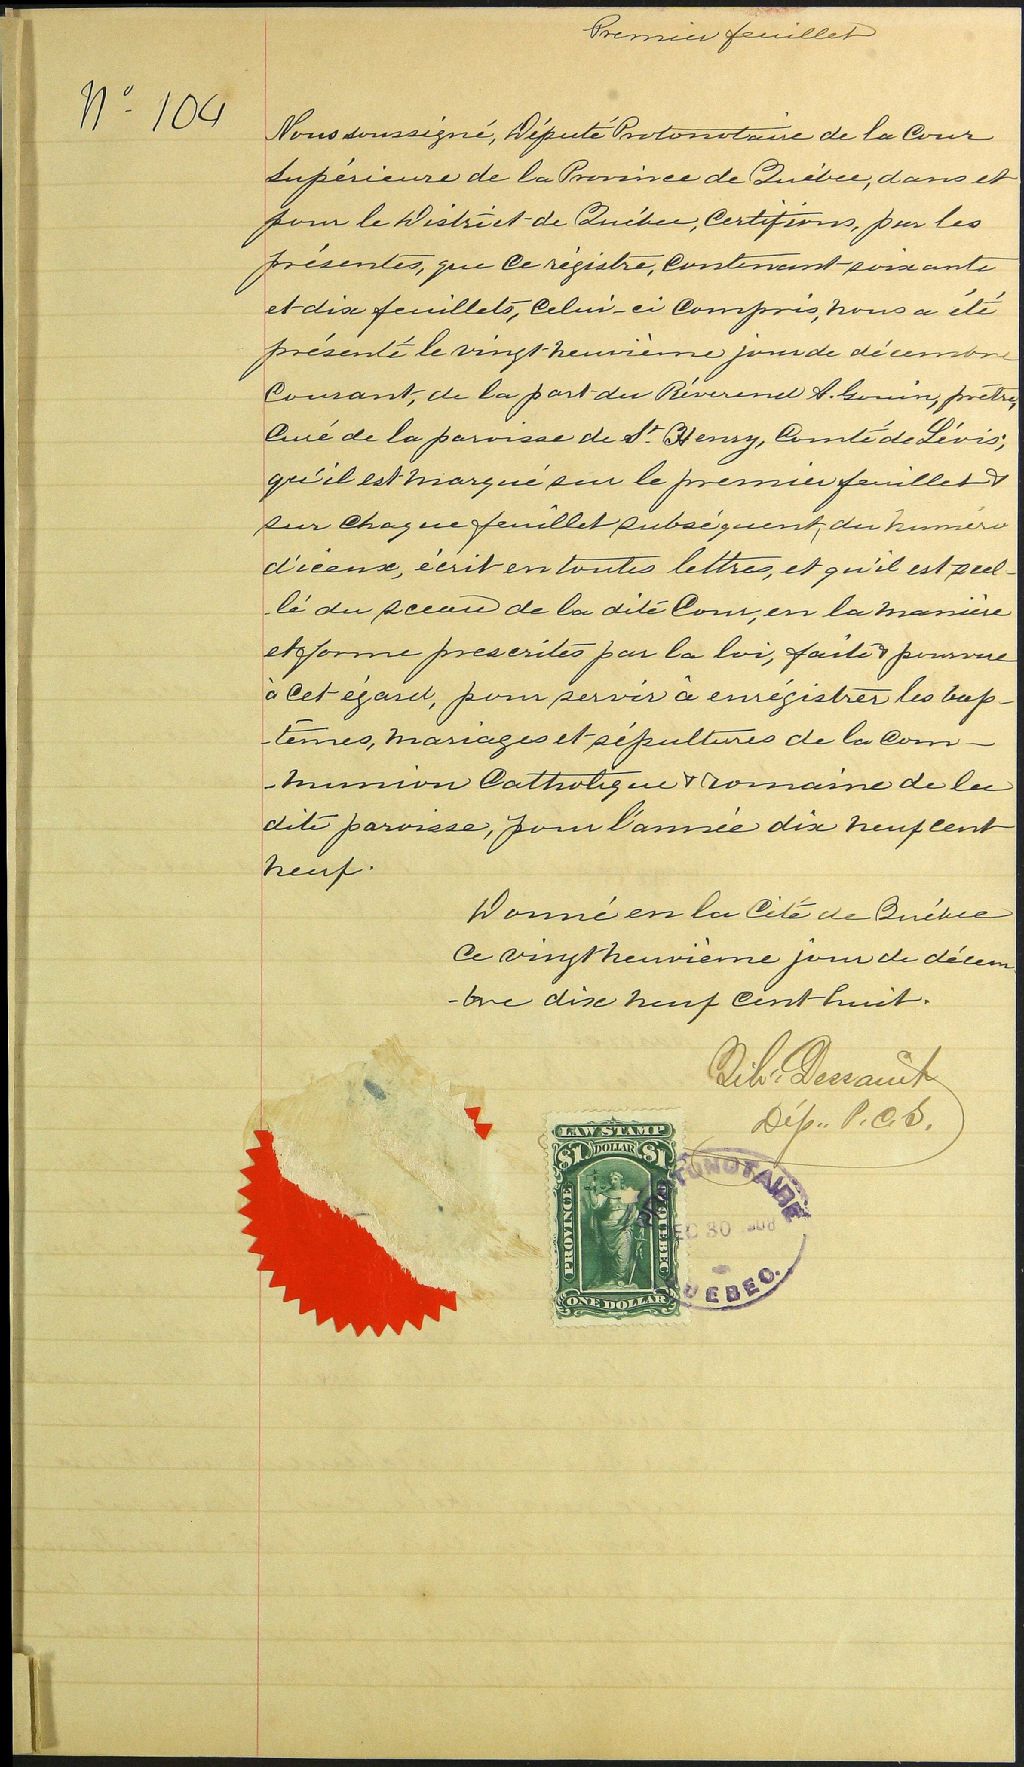 Premier feuillet
No. 104
Nous soussigné, Député Protonotaire de la Cour
Supérieure de la Province de Québec, dans et
pour le District de Québec, Certifions, par les
présentes, que ce régistre, contenant soixante
et dix feuillets, celui-ci compris, nous a été
présenté le vingt-neuvième jour de décembre
courant, de la part du Révérend A. Gouin, prêtre,
Curé de la paroisse de St. Henry, Comté de Lévis,
qu'il est marqué sur le premier feuillet &
sur chaque feuillet subséquent, du numéro
d'iceux, écrit en toutes lettres, et qu'il est scel-
-lé du sceau de la dite Cour, en la manière
et forme prescrites par la loi, faite & pourvue
à cet égard, pour servir à enrégistrer les bap-
-têmes, mariages et sépultures de la com-
-munion Catholique & romaine de la
dite paroisse, pour l'année dix neuf cent
neuf.
Donné en la Cité de Québec
ce vingt neuvième jour de décem
-bre dix neuf cent huit.
Dép. P.C.S.
LAW STAMP
$1 DOLLAR $1
PROVINCE QUEBEC
ONE DOLLAR
PROTONOTAIRE
DEC 30 1908
QUEBEC.